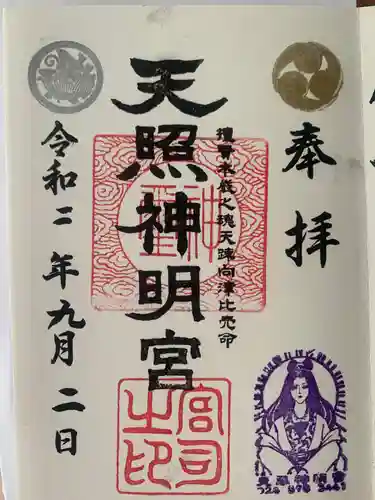 奉拝
撞賢木厳之魂天疎向津比売命
天照神明宮
宮司之印
令和二年九月二日